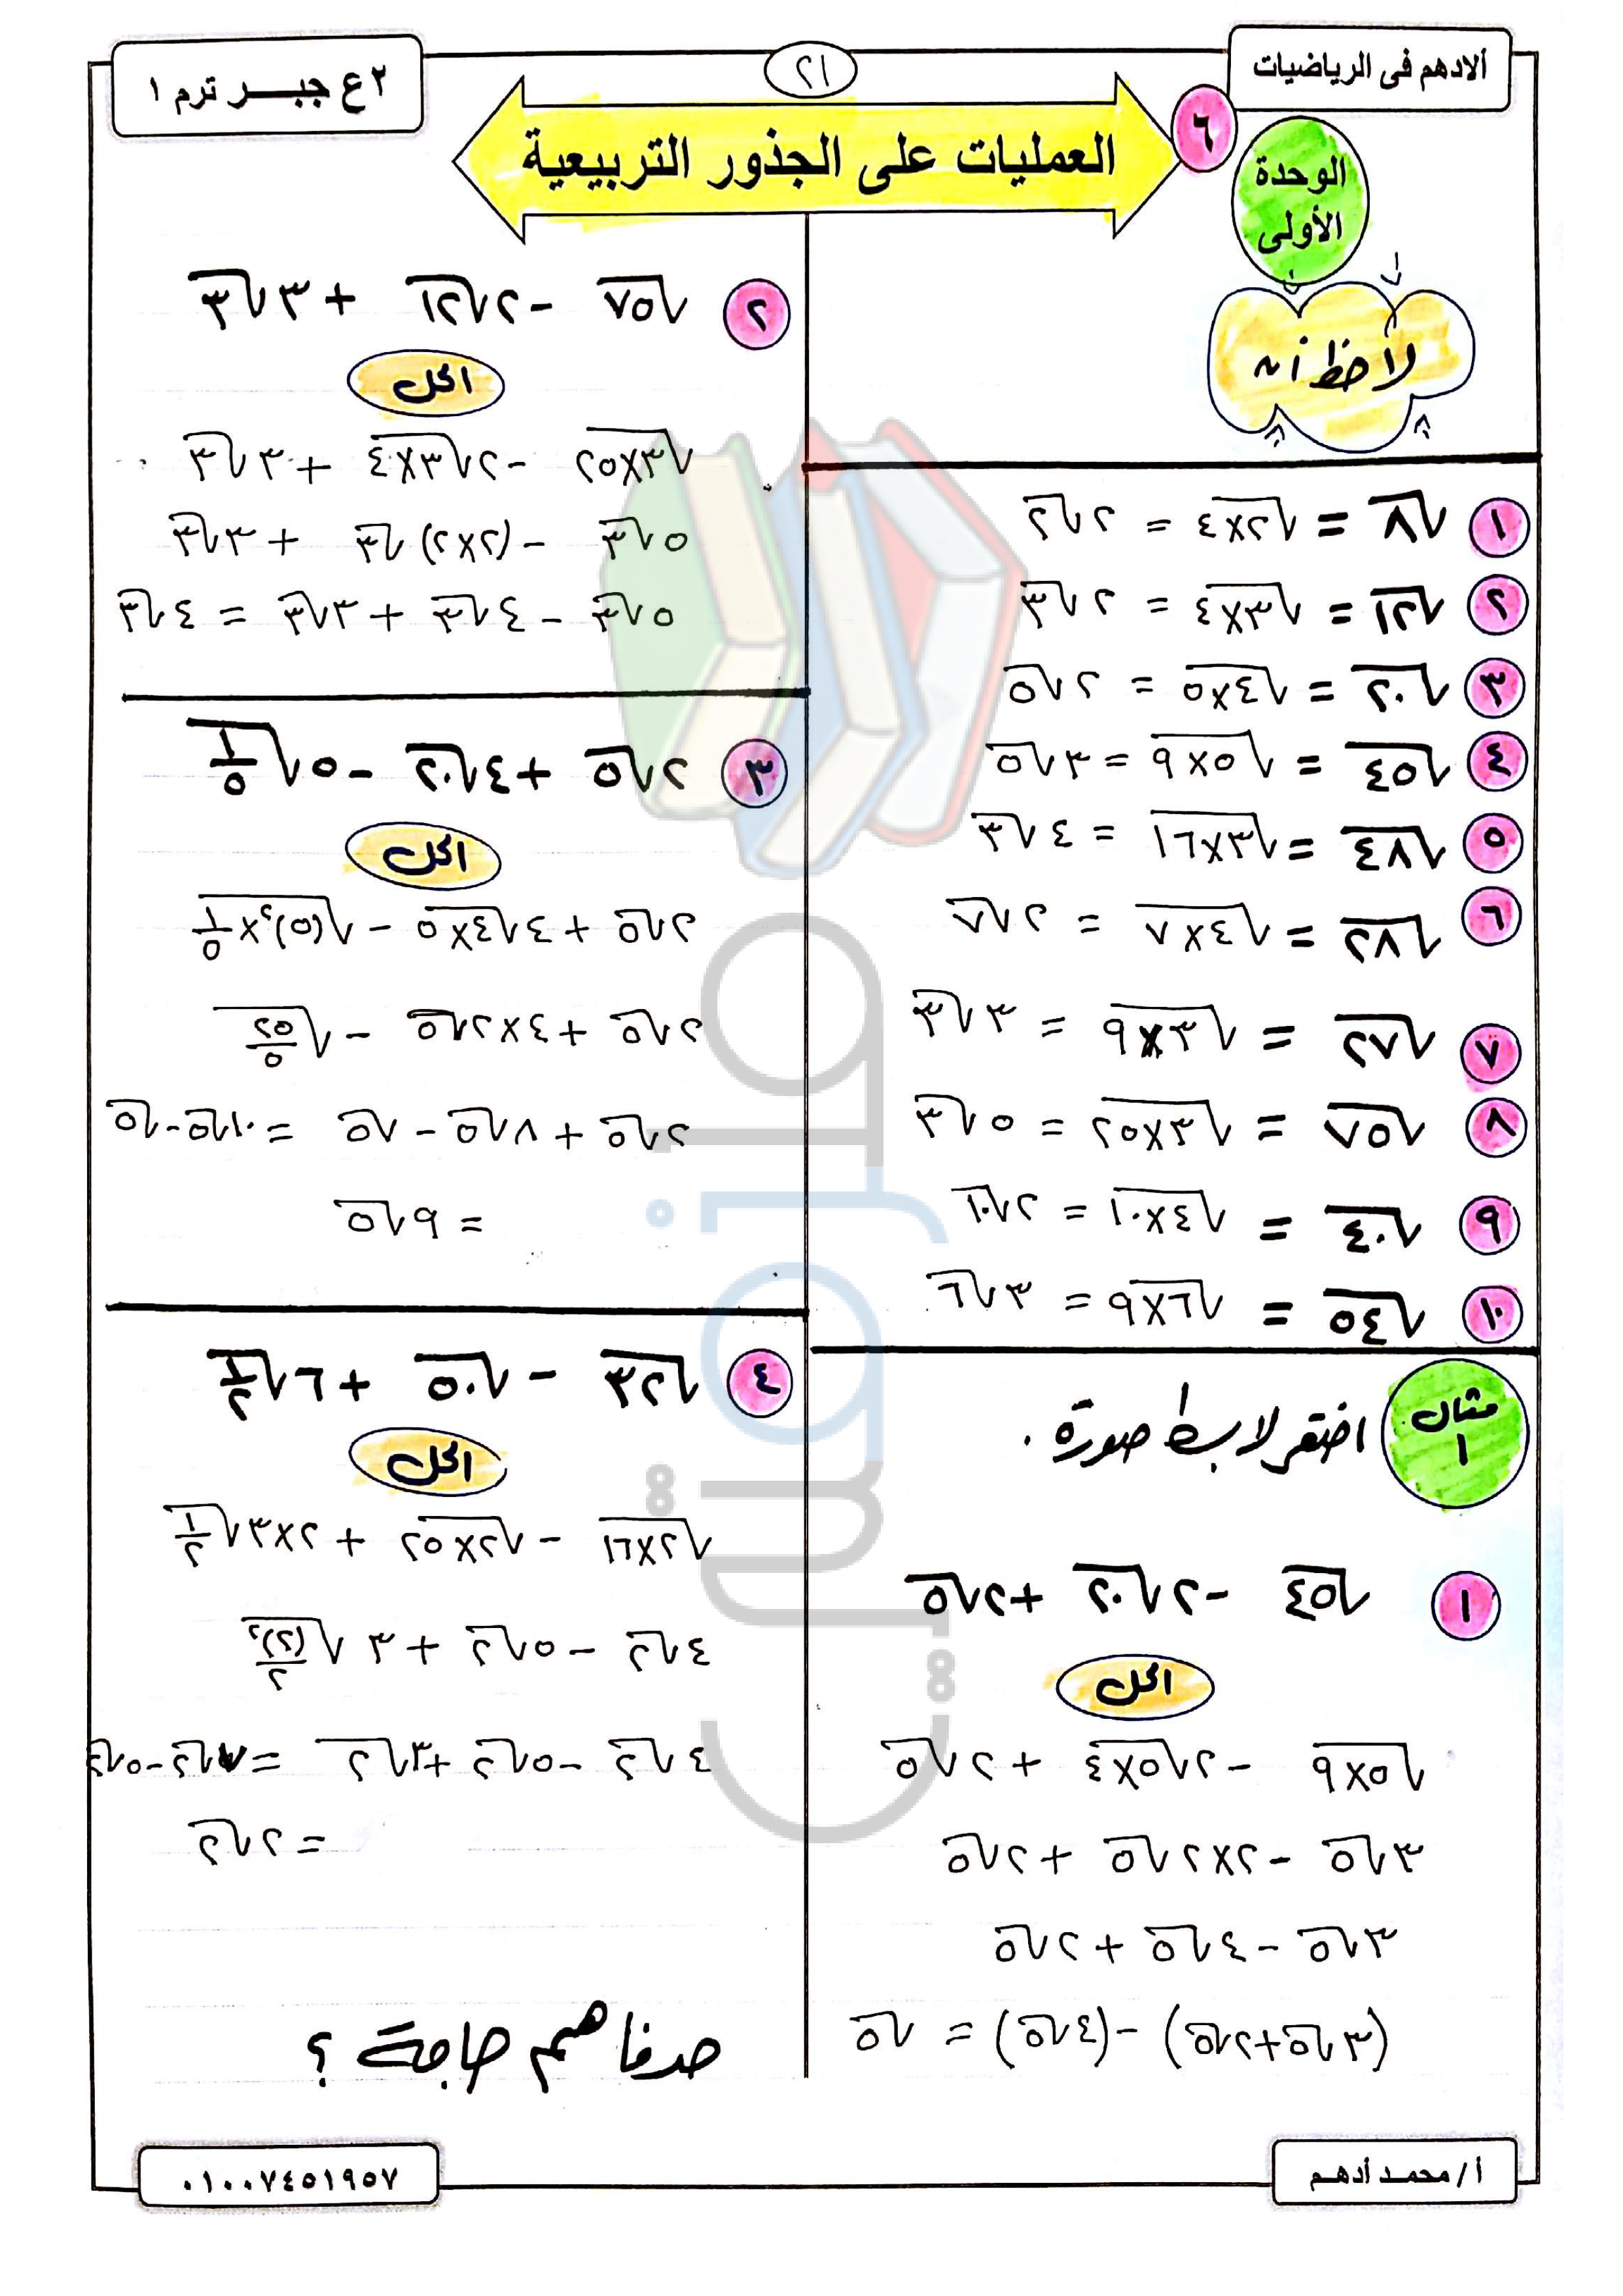 ألادهم فى الرياضيات
٢١
٢ ع جبـــر ترم ١
٦
العمليات على الجذور التربيعية
الوحدة الأولى
لاحظ أن
١ √٨ = √٢×٤ = ٢√٢
٢ √١٢ = √٣×٤ = ٢√٣
٣ √٢٠ = √٤×٥ = ٢√٥
٤ √٤٥ = √٥×٩ = ٣√٥
٥ √٤٨ = √٣×١٦ = ٤√٣
٦ √٢٨ = √٤×٧ = ٢√٧
٧ √٢٧ = √٣×٩ = ٣√٣
٨ √٧٥ = √٣×٢٥ = ٥√٣
٩ √٤٠ = √٤×١٠ = ٢√١٠
١٠ √٥٤ = √٦×٩ = ٣√٦
مثال ١ اختصر لابسط صورة .
١ √٤٥ - ٢√٢٠ + ٢√٥
الحل
√٥×٩ - ٢√٥×٤ + ٢√٥
٣√٥ - ٢×٢√٥ + ٢√٥
٣√٥ - ٤√٥ + ٢√٥
(٣√٥ + ٢√٥) - (٤√٥) = √٥
٢ √٧٥ - ٢√١٢ + ٣√٣
الحل
√٣×٢٥ - ٢√٣×٤ + ٣√٣
٥√٣ - (٢×٢)√٣ + ٣√٣
٥√٣ - ٤√٣ + ٣√٣ = ٤√٣
٣ ٢√٥ + ٤√٢٠ - ٥√١/٥
الحل
٢√٥ + ٤√٤×٥ - √(٥)٢×١/٥
٢√٥ + ٤×٢√٥ - √٢٥/٥
٢√٥ + ٨√٥ - √٥ = ١٠√٥ - √٥
= ٩√٥
٤ √٣٢ - √٥٠ + ٦√١/٢
الحل
√٢×١٦ - √٢×٢٥ + ٢×٣√١/٢
٤√٢ - ٥√٢ + ٣√(٢)٢/٢
٤√٢ - ٥√٢ + ٣√٢ = ٧√٢ - ٥√٢
= ٢√٢
حد فاهم حاجة ؟
أ / محمـد أدهـم
٠١٠٠٧٤٥١٩٥٧